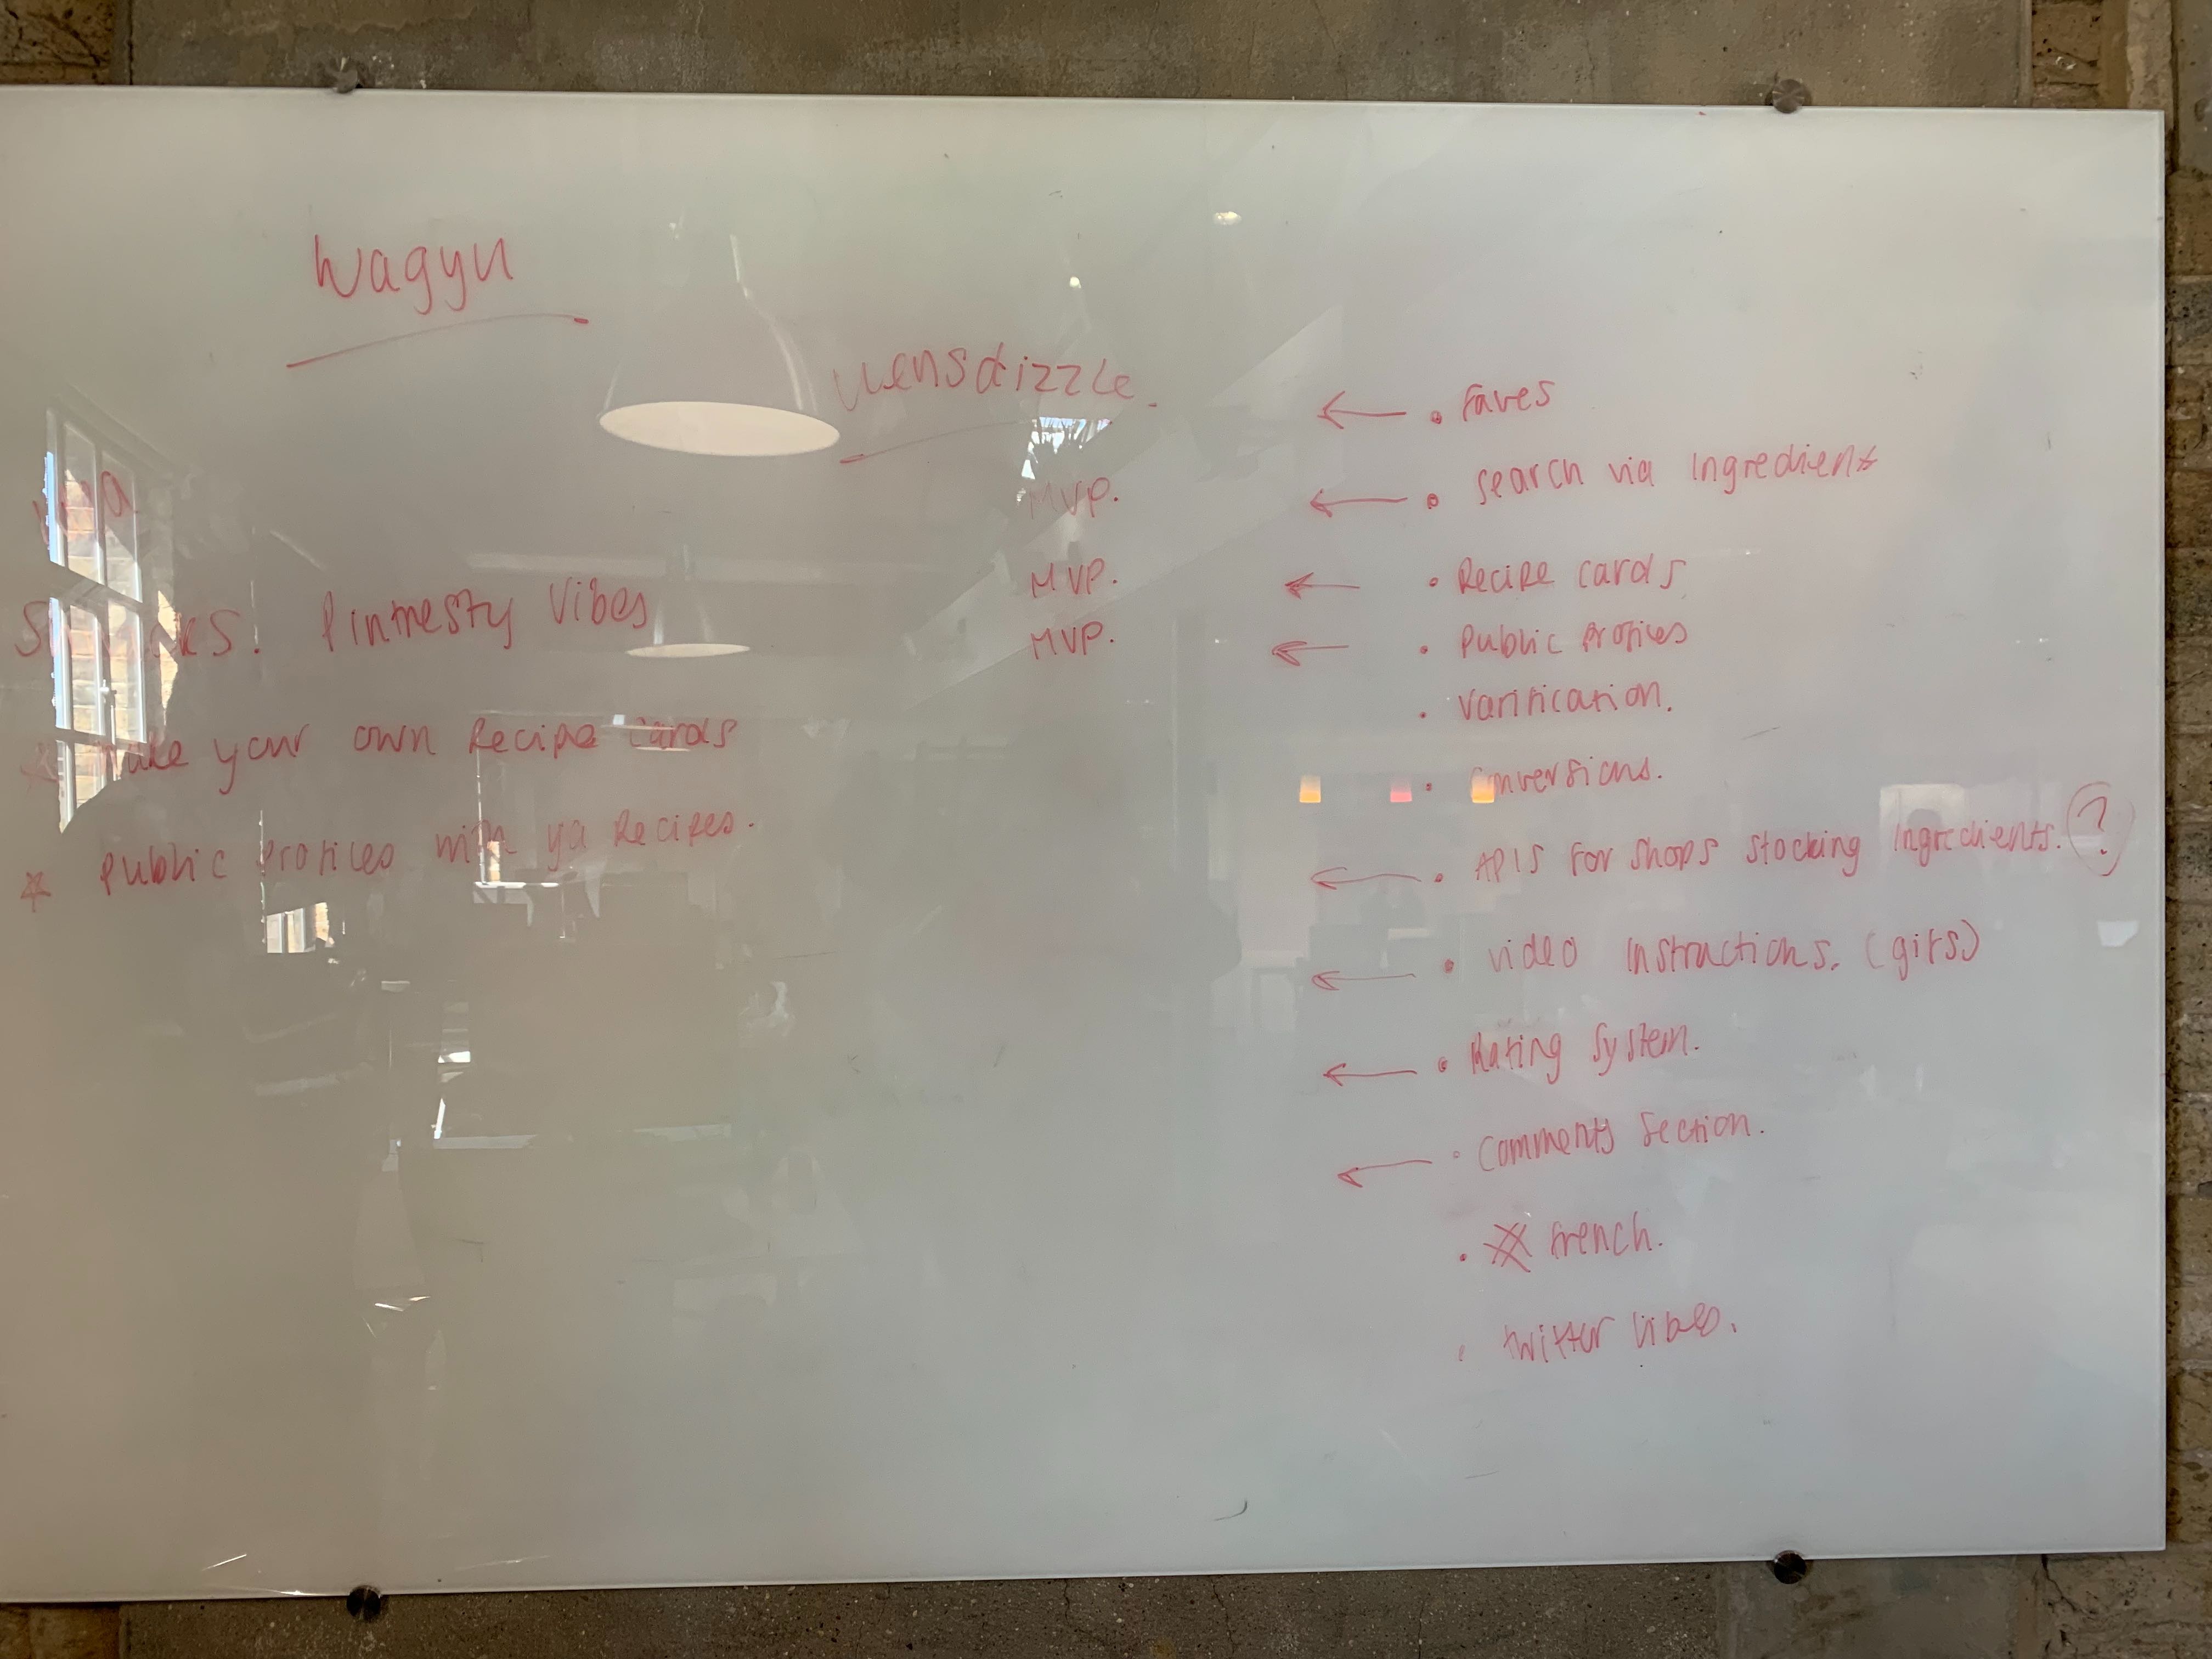 Wagyu
uensdizzle.
Pinresty Vibes
* make your own Recipe cards
* Public Profiles with ya Recipes.
← • Faves
MVP. ← • Search via Ingredients
MVP. ← • Recipe cards
MVP. ← • Public Profiles
• Varification.
• Conversions.
← • APIS For Shops Stocking Ingredients. ?
← • video Instructions. (gifs)
← • Rating System.
← • Comments Section.
• French.
• twitter vibes.